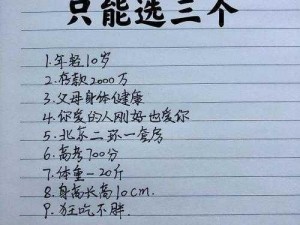 只能选三个
1.年轻10岁
2.存款2000万
3.父母身体健康
4.你爱的人刚好也爱你
5.北京二环一套房
6.高考700分
7.体重-20斤
8.身高长高10cm.
9.狂吃不胖.